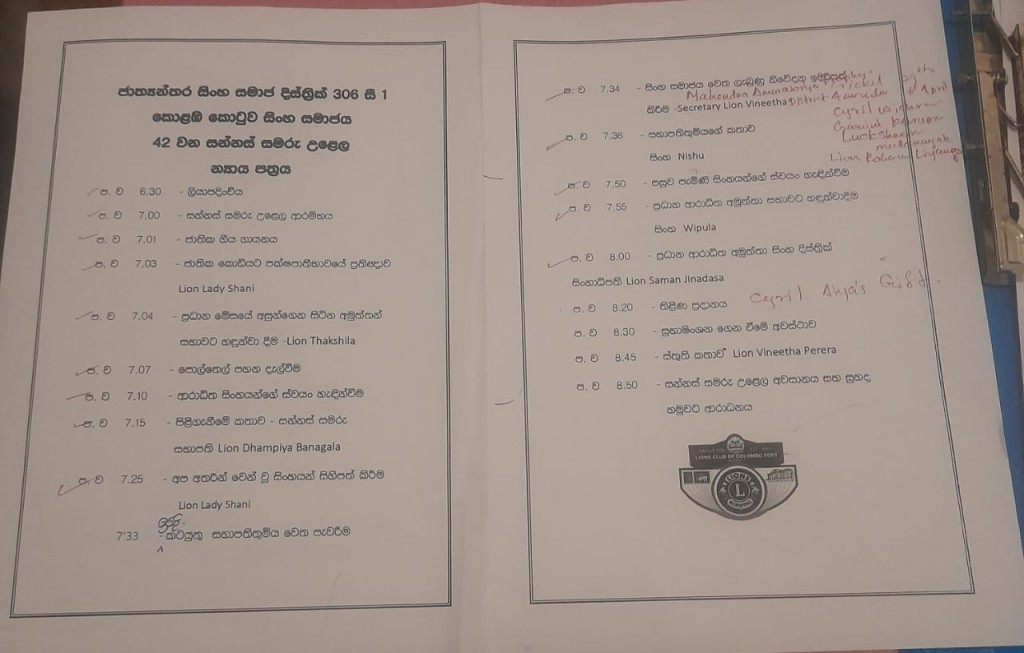 ජාත්‍යන්තර සිංහ සමාජ දිස්ත්‍රික් 306 සී 1
කොළඹ කොටුව සිංහ සමාජය
42 වන සන්නස් සමරු උළෙල
න්‍යාය පත්‍රය
ප. ව 6.30 - ලියාපදිංචිය
ප. ව 7.00 - සන්නස් සමරු උළෙල ආරම්භය
ප. ව 7.01 - ජාතික ගීය ගායනය
ප. ව 7.03 - ජාතික කොඩියට පක්ෂපාතීභාවයේ ප්‍රතිඥාව
Lion Lady Shani
ප. ව 7.04 - ප්‍රධාන මේසයේ අසුන්ගෙන සිටින අමුත්තන්
සභාවට හඳුන්වා දීම -Lion Thakshila
ප. ව 7.07 - පොල්තෙල් පහන දැල්වීම
ප. ව 7.10 - ආරාධිත සිංහයන්ගේ ස්වයං හැඳින්වීම
ප. ව 7.15 - පිළිගැනීමේ කතාව - සන්නස් සමරු
සභාපති Lion Dhampiya Banagala
ප. ව 7.25 - අප අතරින් වෙන් වූ සිංහයන් සිහිපත් කිරීම
Lion Lady Shani
7'33 - කටයුතු සභාපතිතුමිය වෙත පැවරීම
ප. ව 7.34 - සිංහ සමාජය වෙත ලැබුණු නිවේදන ඉදිරිපත්
කිරීම -Secretary Lion Vineetha
Cricket
District
April
Cyril
ප. ව 7.36 - සභාපතිතුමියගේ කතාව
සිංහ Nishu
Lion
ප. ව 7.50 - පසුව පැමිණි සිංහයන්ගේ ස්වයං හැඳින්වීම
ප. ව 7.55 - ප්‍රධාන ආරාධිත අමුත්තා සභාවට හඳුන්වාදීම
සිංහ Wipula
ප. ව 8.00 - ප්‍රධාන ආරාධිත අමුත්තා සිංහ දිස්ත්‍රික්
සිංහාධිපති Lion Saman Jinadasa
ප. ව 8.20 - තිළිණ ප්‍රදානය Cyril
ප. ව 8.30 - සුභාශිංශන ගෙන ඒමේ අවස්ථාව
ප. ව 8.45 - ස්තුති කතාව Lion Vineetha Perera
ප. ව 8.50 - සන්නස් සමරු උළෙල අවසානය සහ සුහද
හමුවට ආරාධනය
LIONS CLUB OF COLOMBO FORT
LIONS
L